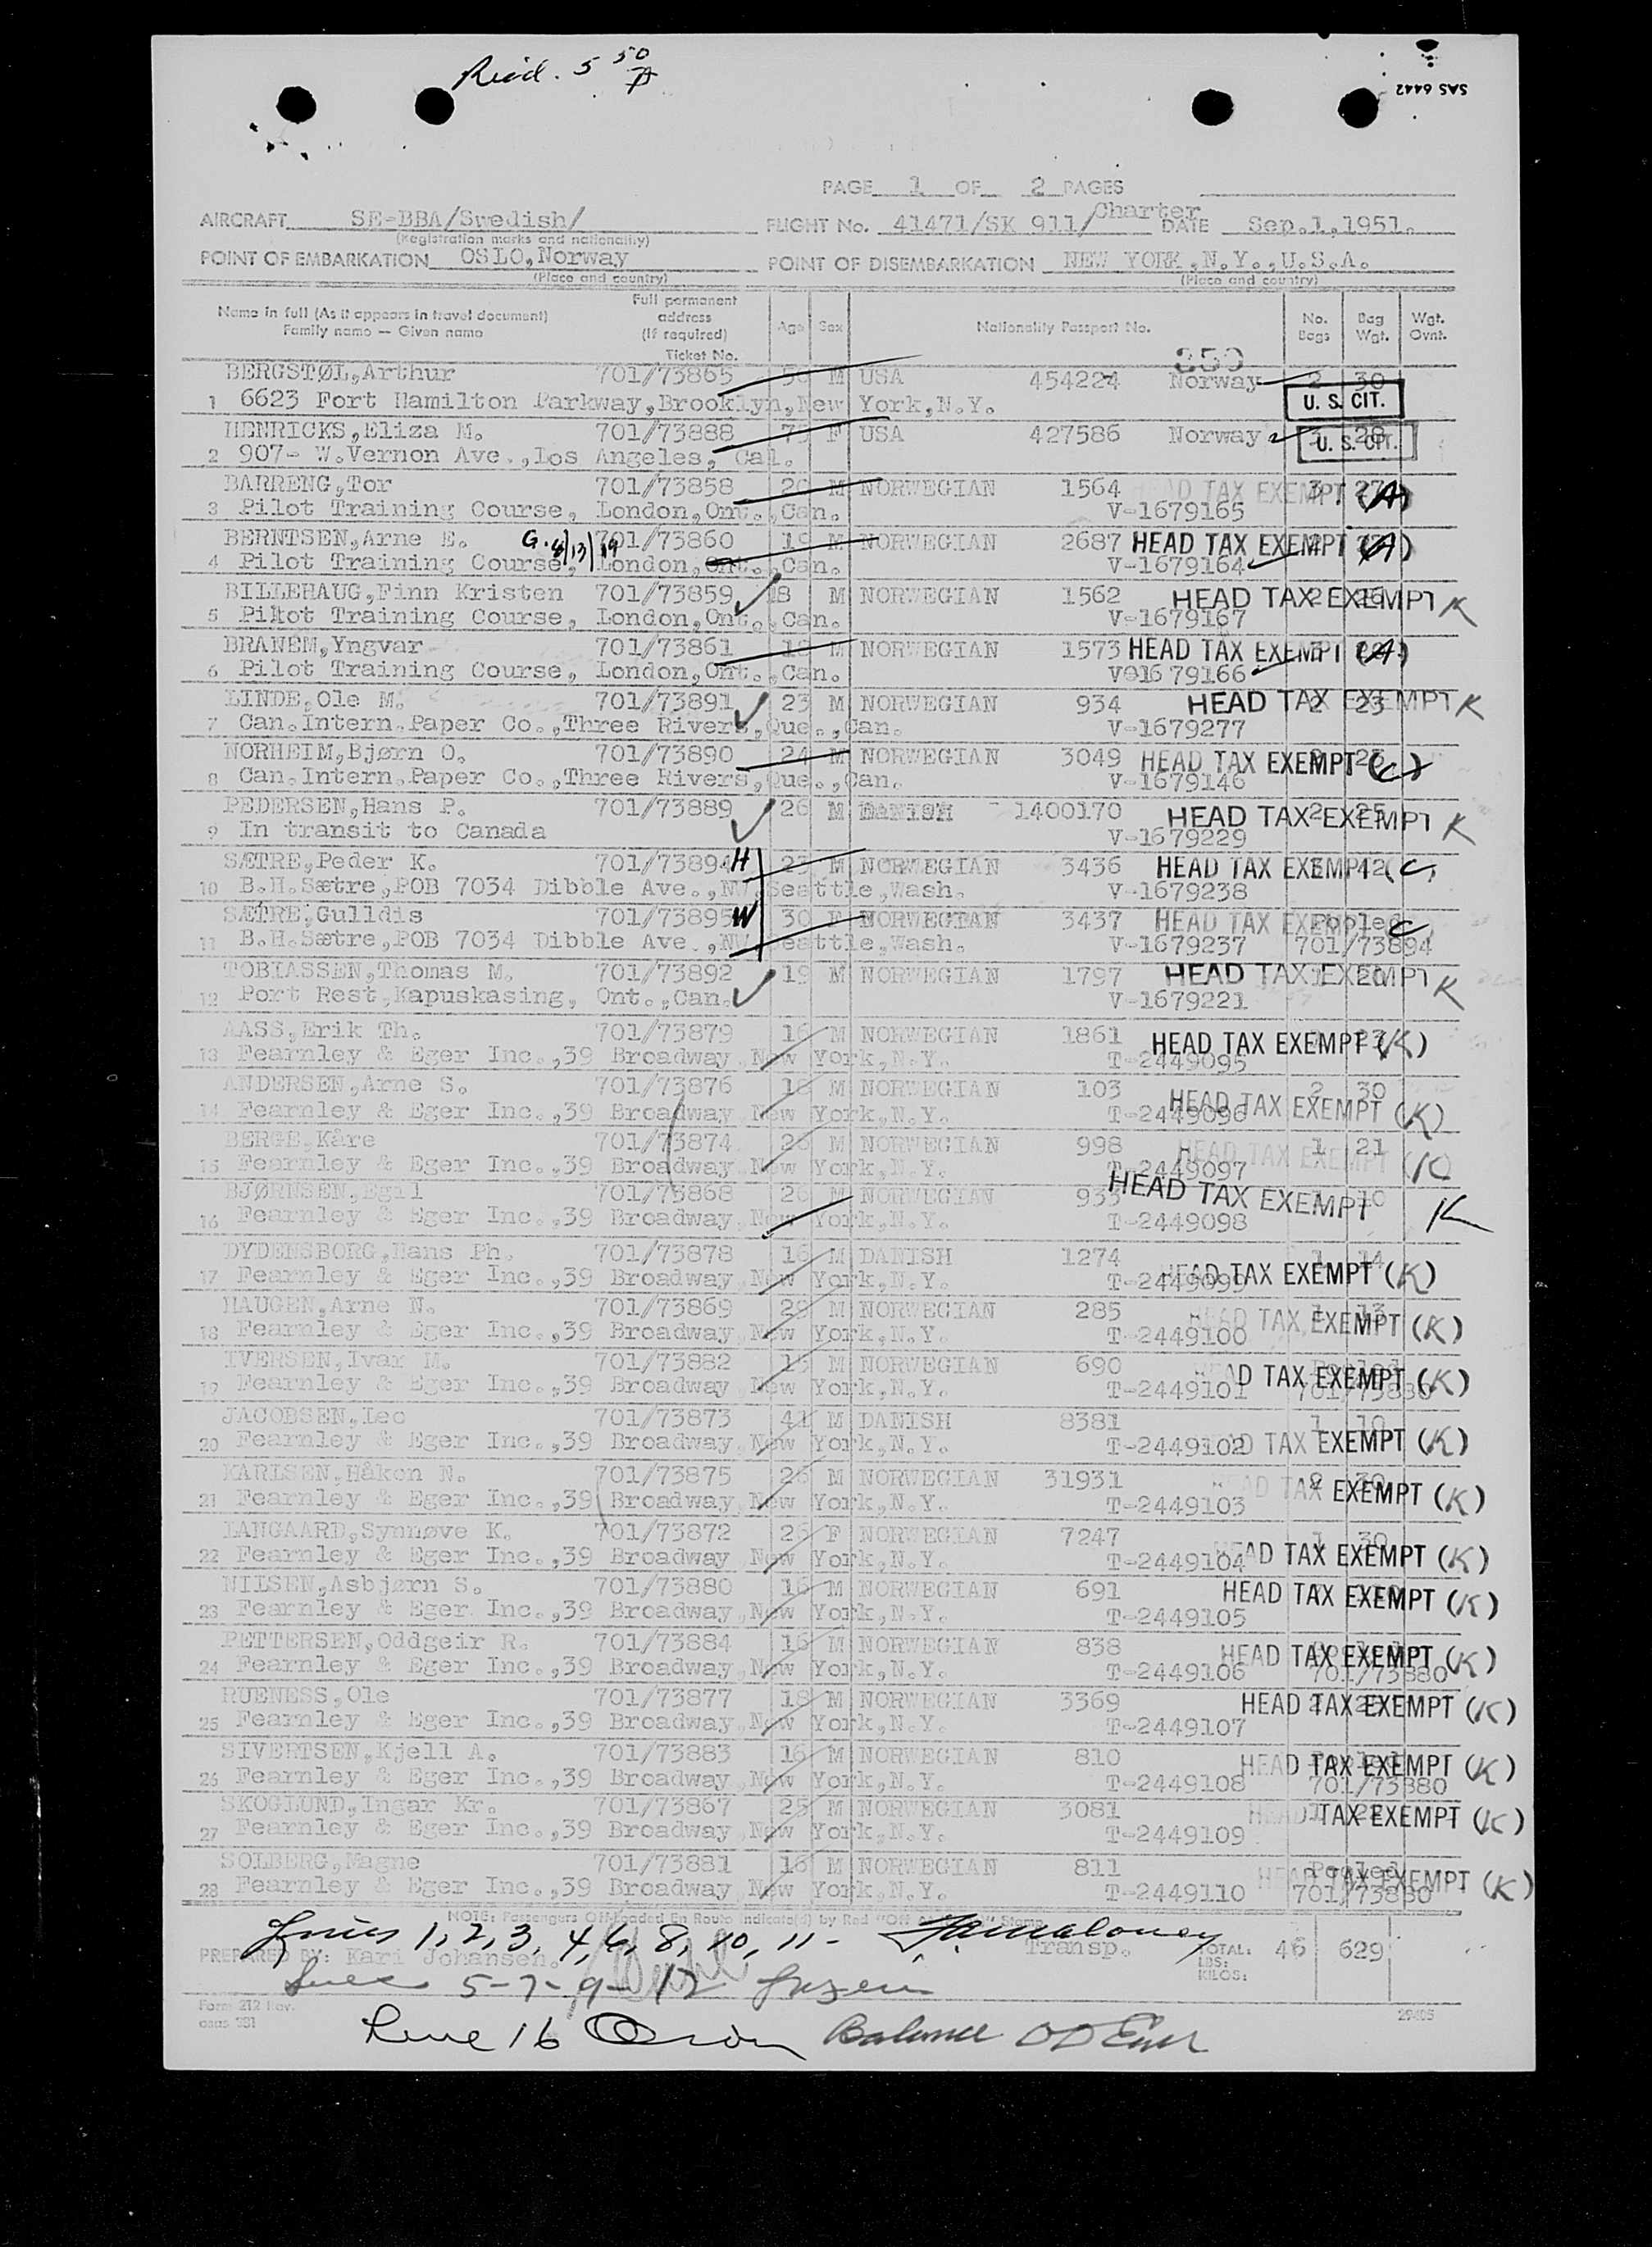 Recd. 5 50
SAS 6442
PAGE 1 OF 2 PAGES
AIRCRAFT SE-BBA/Swedish/ FLIGHT No. 41471/SK 911/Charter DATE Sep.1,1951.
(Registration marks and nationality)
POINT OF EMBARKATION OSLO,Norway POINT OF DISEMBARKATION NEW YORK,N.Y.,U.S.A.
(Place and country) (Place and country)
Name in full (As it appears in travel document) Family name — Given name Full permanent address (If required) Ticket No. Age Sex Nationality Passport No. No. Bags Bag Wgt. Wgt. Ovnt.
BERGSTØL,Arthur 701/73865 M USA 454224 Norway 2 30
1 6623 Fort Hamilton Parkway,Brooklyn,New York,N.Y. U. S. CIT.
HENRICKS,Eliza M. 701/73888 F USA 427586 Norway U. S. CIT.
2 907- W.Vernon Ave.,Los Angeles, Cal.
BARRENG,Tor 701/73858 20 M NORWEGIAN 1564 HEAD TAX EXEMPT 3 27 (A)
3 Pilot Training Course, London,Ont.,Can. V-1679165
BERNTSEN,Arne E. G. 701/73860 19 M NORWEGIAN 2687 HEAD TAX EXEMPT (A)
4 Pilot Training Course, London,Ont.,Can. V-1679164
BILLEHAUG,Finn Kristen 701/73859 18 M NORWEGIAN 1562 HEAD TAX EXEMPT K
5 Pilot Training Course, London,Ont.,Can. V-1679167
BRANEM,Yngvar 701/73861 18 M NORWEGIAN 1573 HEAD TAX EXEMPT (A)
6 Pilot Training Course, London,Ont.,Can. V@1679166
LINDE,Ole M. 701/73891 23 M NORWEGIAN 934 HEAD TAX EXEMPT 2 23 K
7 Can.Intern.Paper Co.,Three Rivers,Que.,Can. V-1679277
NORHEIM,Bjørn O. 701/73890 24 M NORWEGIAN 3049 HEAD TAX EXEMPT (C)
8 Can.Intern.Paper Co.,Three Rivers,Que.,Can. V-1679146
PEDERSEN,Hans P. 701/73889 26 M DANISH 1400170 HEAD TAX EXEMPT 2 25 K
9 In transit to Canada V-1679229
SÆTRE,Peder K. 701/73894 H 23 M NORWEGIAN 3436 HEAD TAX EXEMPT 42 (C)
10 B.H.Sætre,POB 7034 Dibble Ave.,NW,Seattle,Wash. V-1679238
SÆTRE,Gulldis 701/73895 W 30 F NORWEGIAN 3437 HEAD TAX EXEMPT Pooled C
11 B.H.Sætre,POB 7034 Dibble Ave.,NW,Seattle,Wash. V-1679237 701/73894
TOBIASSEN,Thomas M. 701/73892 19 M NORWEGIAN 1797 HEAD TAX EXEMPT 1 20 K
12 Port Rest,Kapuskasing, Ont.,Can. V-1679221
AASS,Erik Th. 701/73879 16 M NORWEGIAN 1861 HEAD TAX EXEMPT 23 (K)
13 Fearnley & Eger Inc.,39 Broadway,New York,N.Y. T-2449095
ANDERSEN,Arne S. 701/73876 18 M NORWEGIAN 103 2 30
14 Fearnley & Eger Inc.,39 Broadway,New York,N.Y. T-2449096 HEAD TAX EXEMPT (K)
BERGE,Kåre 701/73874 M NORWEGIAN 998 HEAD TAX EXEMPT 1 21 (K)
15 Fearnley & Eger Inc.,39 Broadway,New York,N.Y. T-2449097
BJØRNSEN,Egil 701/73868 26 M NORWEGIAN 933 HEAD TAX EXEMPT 10 K
16 Fearnley & Eger Inc.,39 Broadway,New York,N.Y. T-2449098
DYDENSBORG,Hans Ph. 701/73878 16 M DANISH 1274 1 14
17 Fearnley & Eger Inc.,39 Broadway,New York,N.Y. T-2449099 HEAD TAX EXEMPT (K)
HAUGEN,Arne N. 701/73869 29 M NORWEGIAN 285 HEAD TAX EXEMPT 1 13 (K)
18 Fearnley & Eger Inc.,39 Broadway,New York,N.Y. T-2449100
IVERSEN,Ivar M. 701/73882 M NORWEGIAN 690 HEAD TAX EXEMPT Pooled (K)
19 Fearnley & Eger Inc.,39 Broadway,New York,N.Y. T-2449101 701/73880
JACOBSEN,Leo 701/73873 41 M DANISH 8381 1 10
20 Fearnley & Eger Inc.,39 Broadway,New York,N.Y. T-2449102 HEAD TAX EXEMPT (K)
KARLSEN,Håkon N. 701/73875 26 M NORWEGIAN 31931 HEAD TAX EXEMPT 2 30 (K)
21 Fearnley & Eger Inc.,39 Broadway,New York,N.Y. T-2449103
LANGAARD,Synnøve K. 701/73872 F NORWEGIAN 7247 1 30
22 Fearnley & Eger Inc.,39 Broadway,New York,N.Y. T-2449104 HEAD TAX EXEMPT (K)
NILSEN,Asbjørn S. 701/73880 16 M NORWEGIAN 691 HEAD TAX EXEMPT (K)
23 Fearnley & Eger Inc.,39 Broadway,New York,N.Y. T-2449105
PETTERSEN,Oddgeir R. 701/73884 16 M NORWEGIAN 838 HEAD TAX EXEMPT (K)
24 Fearnley & Eger Inc.,39 Broadway,New York,N.Y. T-2449106 701/73880
RUENESS,Ole 701/73877 18 M NORWEGIAN 3369 HEAD TAX EXEMPT (K)
25 Fearnley & Eger Inc.,39 Broadway,New York,N.Y. T-2449107
SIVERTSEN,Kjell A. 701/73883 16 M NORWEGIAN 810 HEAD TAX EXEMPT (K)
26 Fearnley & Eger Inc.,39 Broadway,New York,N.Y. T-2449108 701/73880
SKOGLUND,Ingar Kr. 701/73867 25 M NORWEGIAN 3081 HEAD TAX EXEMPT (K)
27 Fearnley & Eger Inc.,39 Broadway,New York,N.Y. T-2449109
SOLBERG,Magne 701/73881 16 M NORWEGIAN 811 HEAD TAX EXEMPT Pooled (K)
28 Fearnley & Eger Inc.,39 Broadway,New York,N.Y. T-2449110 701/73880
NOTE: Passengers Offloaded En Route Indicate(d) by Red
Lines 1, 2, 3, 4, 6, 8, 10, 11 -
PREPARED BY: Kari Johansen. Transp. TOTAL: 46 629
LBS:
KILOS:
Lines 5-7-9-12
Form 212 Rev.
29405
Line 16 Balance